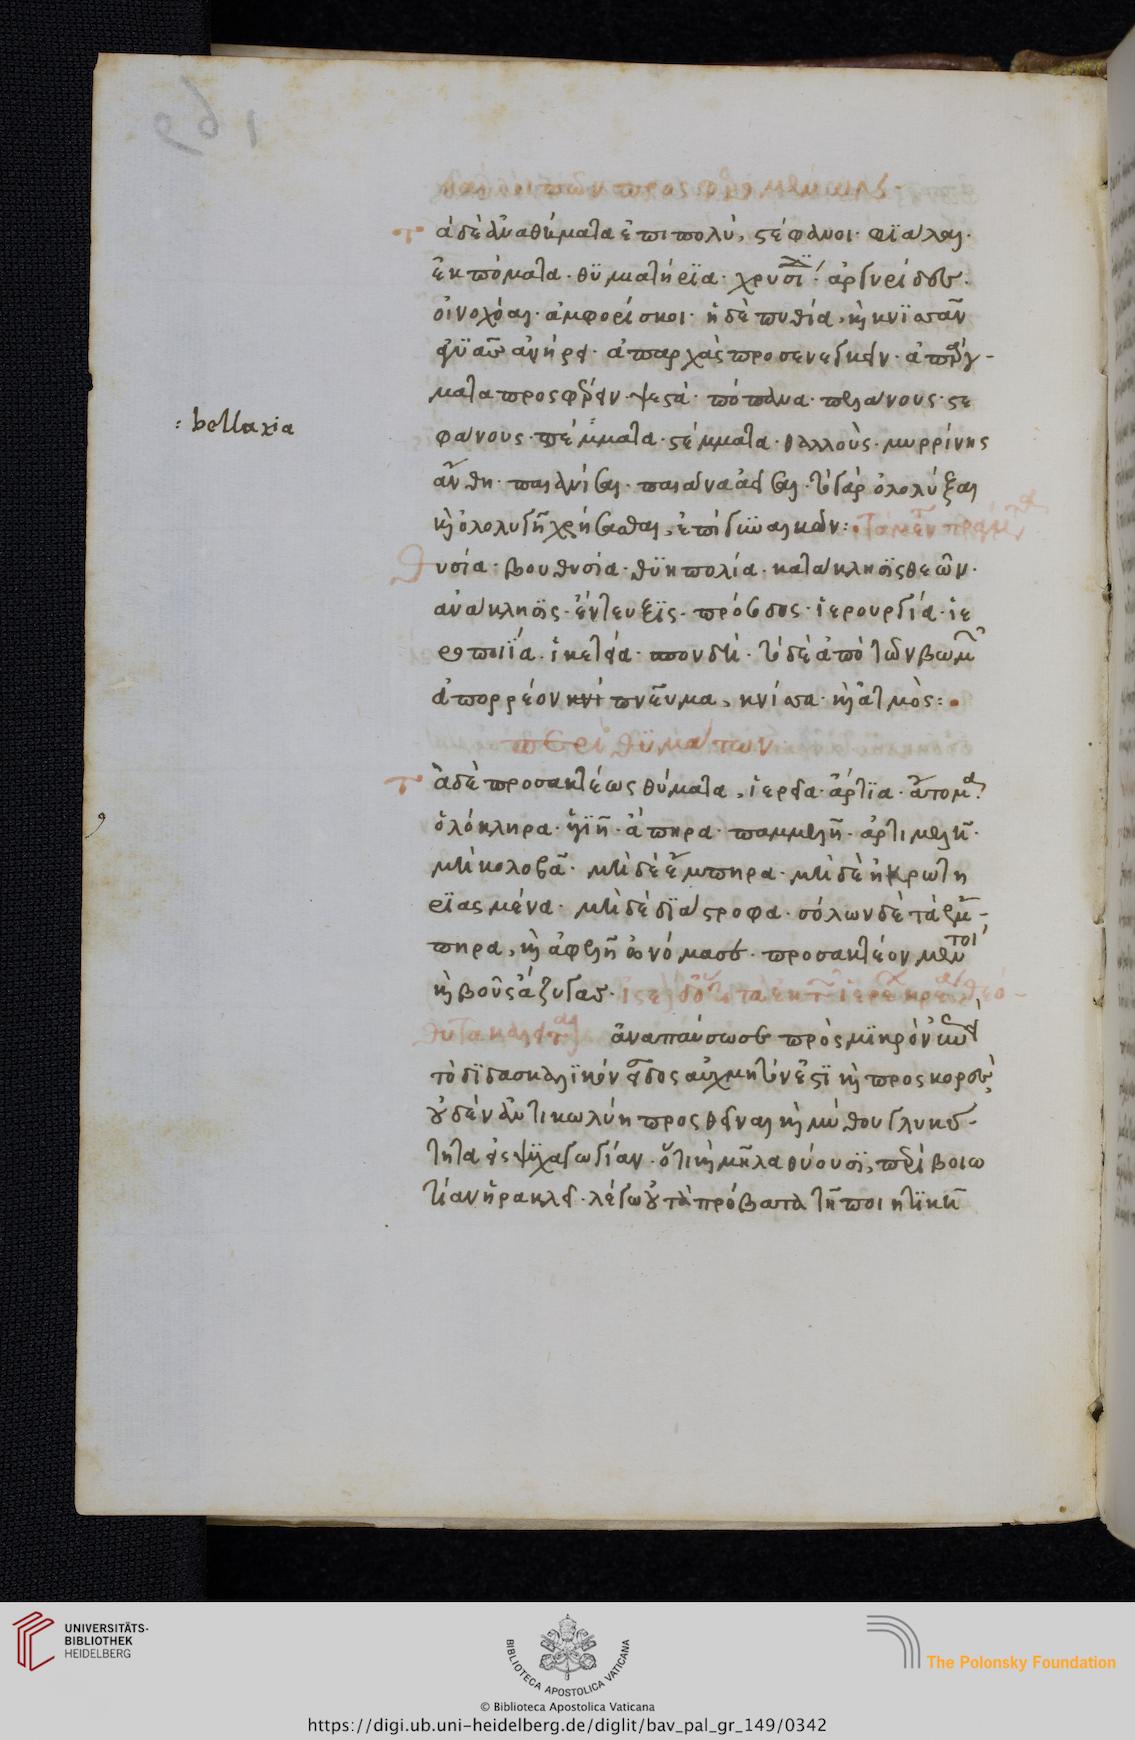 τάδε ἀναθήματα ἐπιπολύ, στέφανοι· φϊάλαι·
ἐκπόματα· θϋμιατήρϊα· ἀργυρίδες·
οἰνοχόαι· ἀμφορίσκοι· ἡ δὲ πυθία, καὶ κνϊσᾶν
ἀγυιὰς ἀνήρει· ἀπαρχὰς προσενεγκεῖν·
ματα προσφέρειν· ψεστὰ· πόπανα· πελάνους· στε
: bellaria
φάνους· πέμματα· στέμματα· θαλλοὺς· μυρρίνης
ἄνθη· παιανίσαι· παιᾶνα ἀεῖσαι· τὸ γὰρ ὀλολύξαι
καὶ ὀλολυγῇ χρήσασθαι, ἐπὶ γυναικῶν:
θυσία· βουθυσία· θϋηπολία· κατάκλησϊς θεῶν·
ἀνάκλησϊς· ἔντευξϊς· πρόσοδος· ἱερουργία· ἱε
ροποιΐα· ἱκετεία· σπονδή· τὸ δὲ ἀπὸ τῶν βωμῶν
ἀπορρέον πνεῦμα, κνίσα· καὶ ἀτμὸς:
περὶ θϋμάτων
τὰ δὲ προσακτέως θύματα, ἱερεῖα· ἄρτϊα· ἄτομα·
ὁλόκληρα· ὑγϊῆ· ἄπηρα· παμμελῆ· ἀρτιμελῆ·
μὴ κολοβὰ· μὴ δὲ ἔμπηρα· μὴ δὲ ἠκρωτη
ρϊασμένα· μὴ δὲ δϊάστροφα· σόλων δὲ τὰ ἔμ-
πηρα, καὶ ἀφελῆ ὠνόμασε· προσακτέον μέντοι
καὶ βοῦς ἄζυγας·
ἀναπαύσωσε πρὸς μϊκρὸν
τὸ δϊδασκαλϊκὸν εἶδος αὐχμητόν ἐστϊ καὶ προσκορὲς
οὐδὲν ἀντικωλύη προσθεῖναι καὶ μύθου γλυκύ-
τητα εἰς ψϋχαγωγίαν· ὅτι καὶ μῆλα θύουσϊ, περὶ βοιω
τίαν ἡρακλεῖ· λέγω οὐ τὰ πρόβατα τῇ ποιητϊκῇ
UNIVERSITÄTS-
BIBLIOTHEK
HEIDELBERG
BIBLIOTECA APOSTOLICA VATICANA
The Polonsky Foundation
© Biblioteca Apostolica Vaticana
https://digi.ub.uni-heidelberg.de/diglit/bav_pal_gr_149/0342